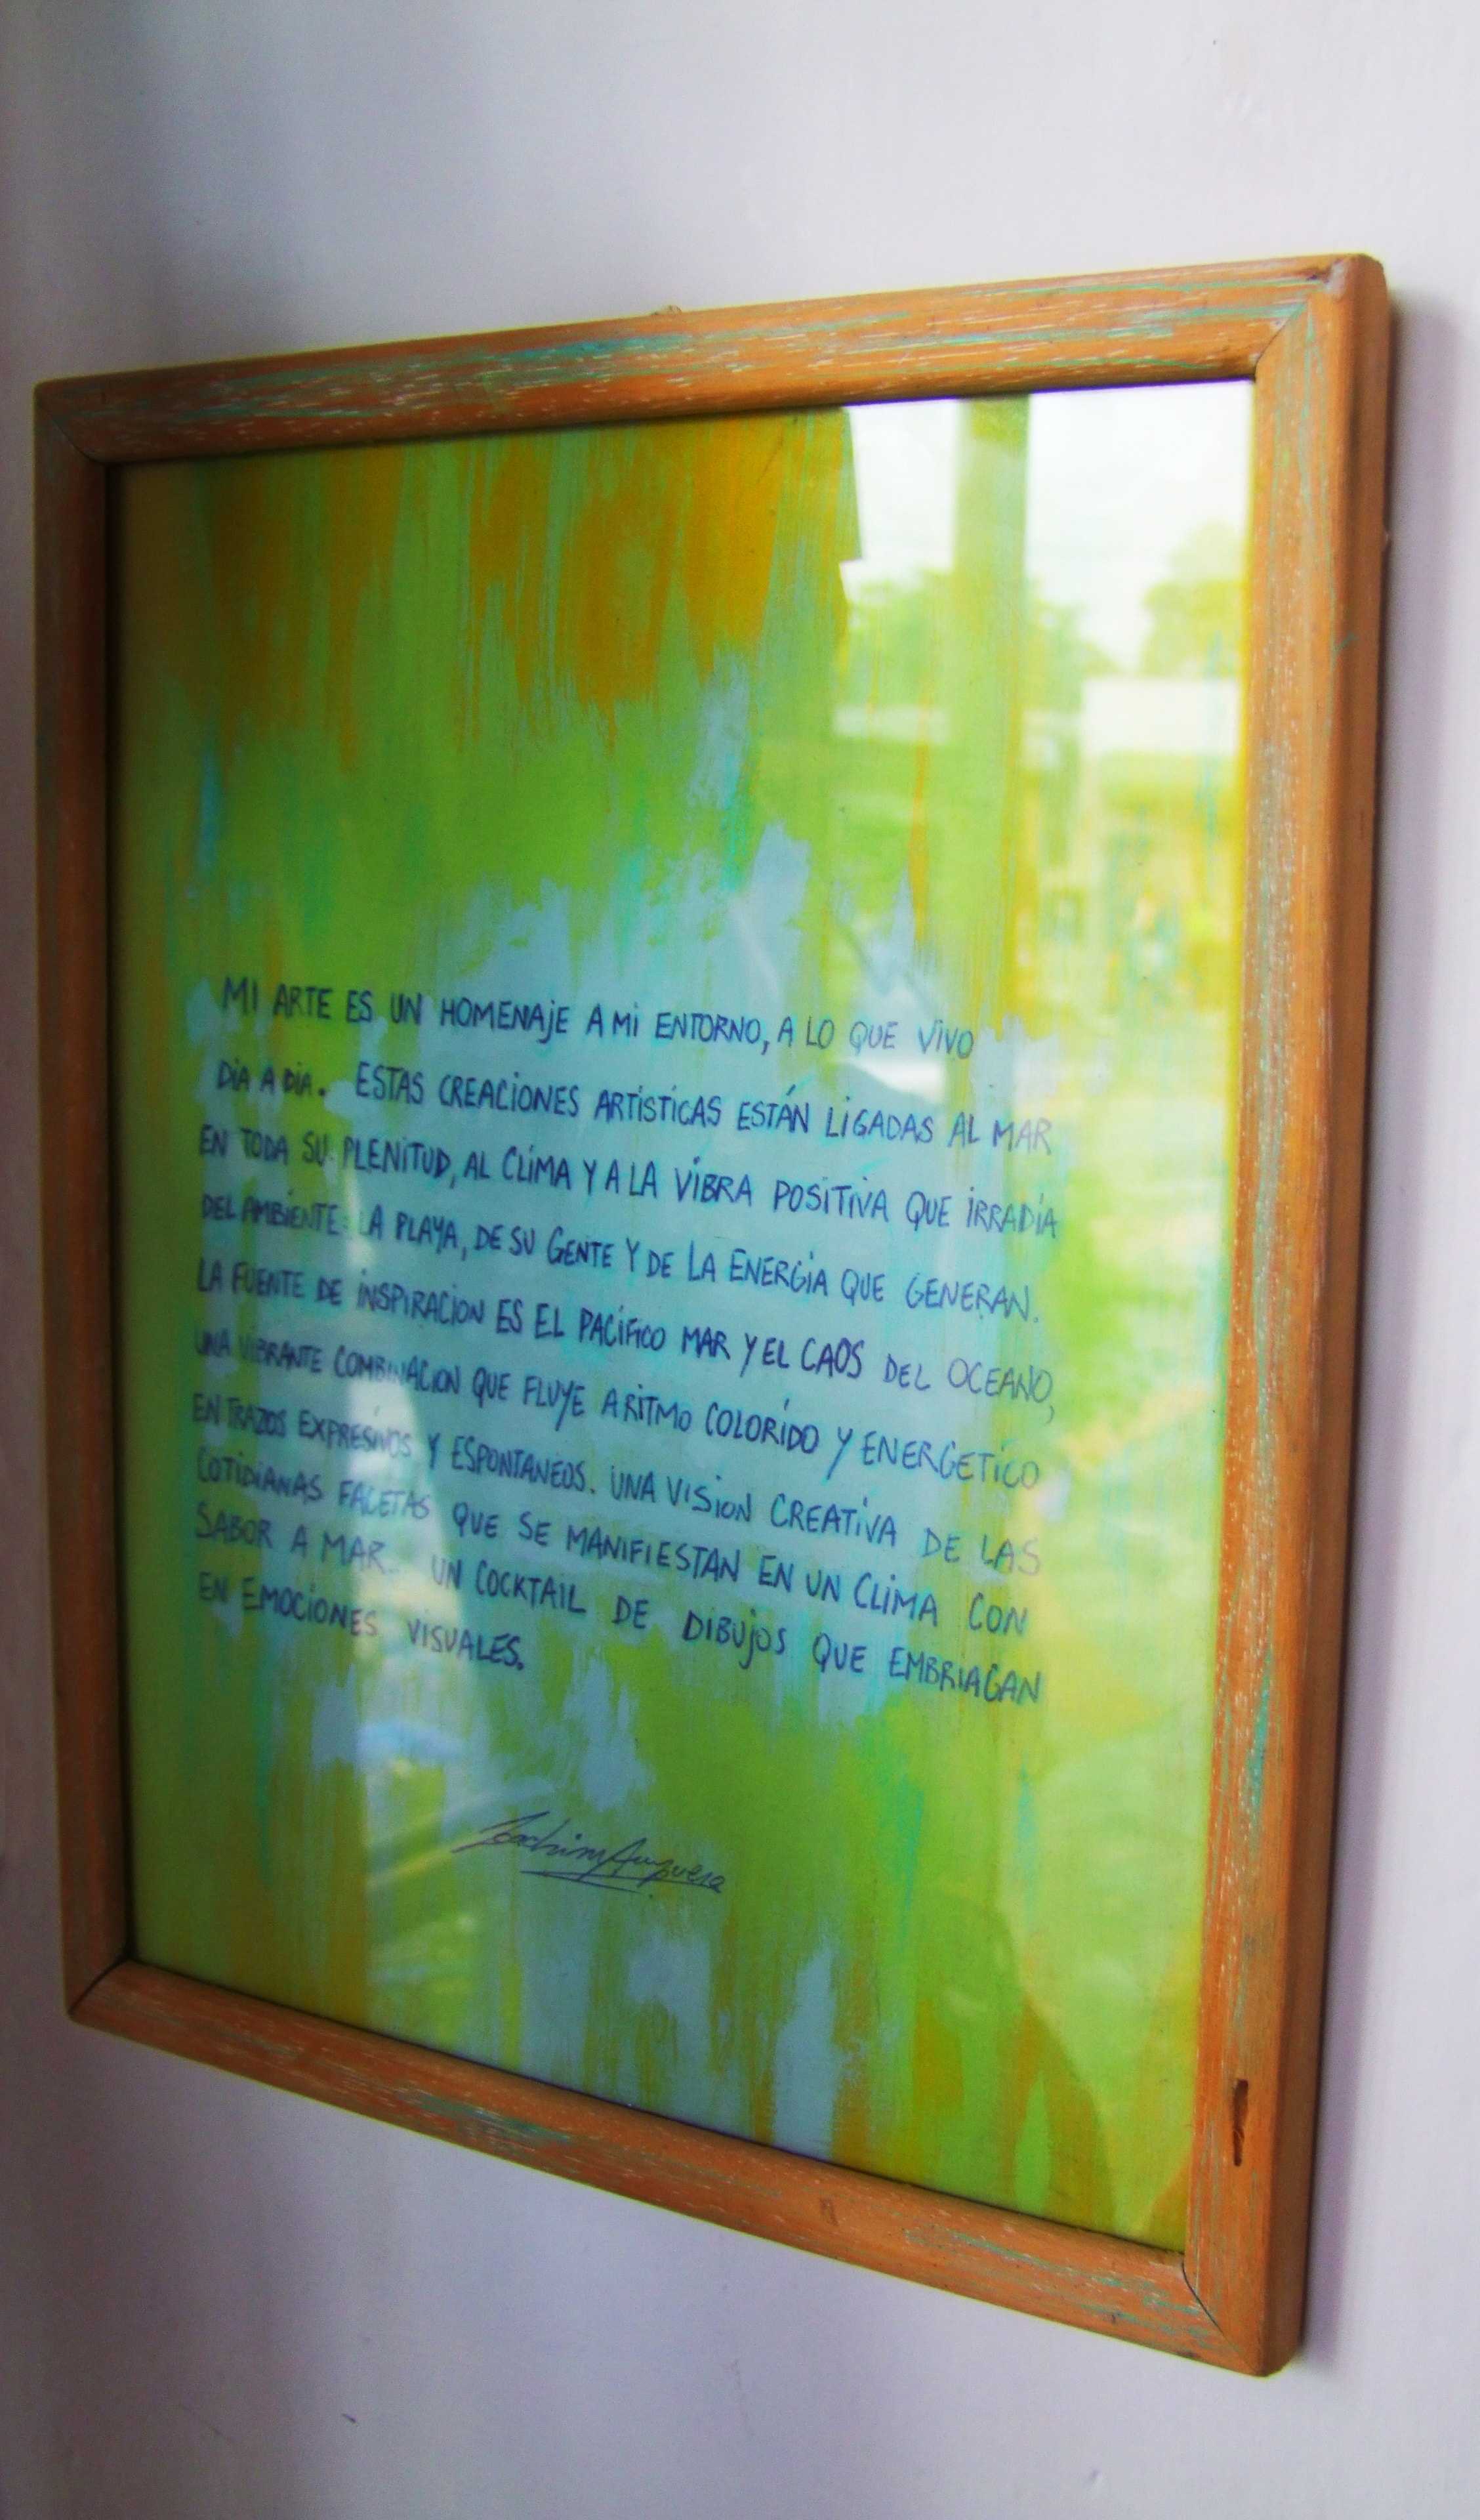 MI ARTE ES UN HOMENAJE A MI ENTORNO, A LO QUE VIVO
DIA A DIA. ESTAS CREACIONES ARTISTICAS ESTÁN LIGADAS AL MAR
EN TODA SU PLENITUD, AL CLIMA Y A LA VIBRA POSITIVA QUE IRRADIA
DEL AMBIENTE: LA PLAYA, DE SU GENTE Y DE LA ENERGIA QUE GENERAN.
LA FUENTE DE INSPIRACION ES EL PACIFICO MAR Y EL CAOS DEL OCEANO,
UNA VIBRANTE COMBINACION QUE FLUYE A RITMO COLORIDO Y ENERGETICO
EN TRAZOS EXPRESIVOS Y ESPONTANEOS. UNA VISION CREATIVA DE LAS
COTIDIANAS FACETAS QUE SE MANIFIESTAN EN UN CLIMA CON
SABOR A MAR. UN COCKTAIL DE DIBUJOS QUE EMBRIAGAN
EN EMOCIONES VISUALES.
Joachim